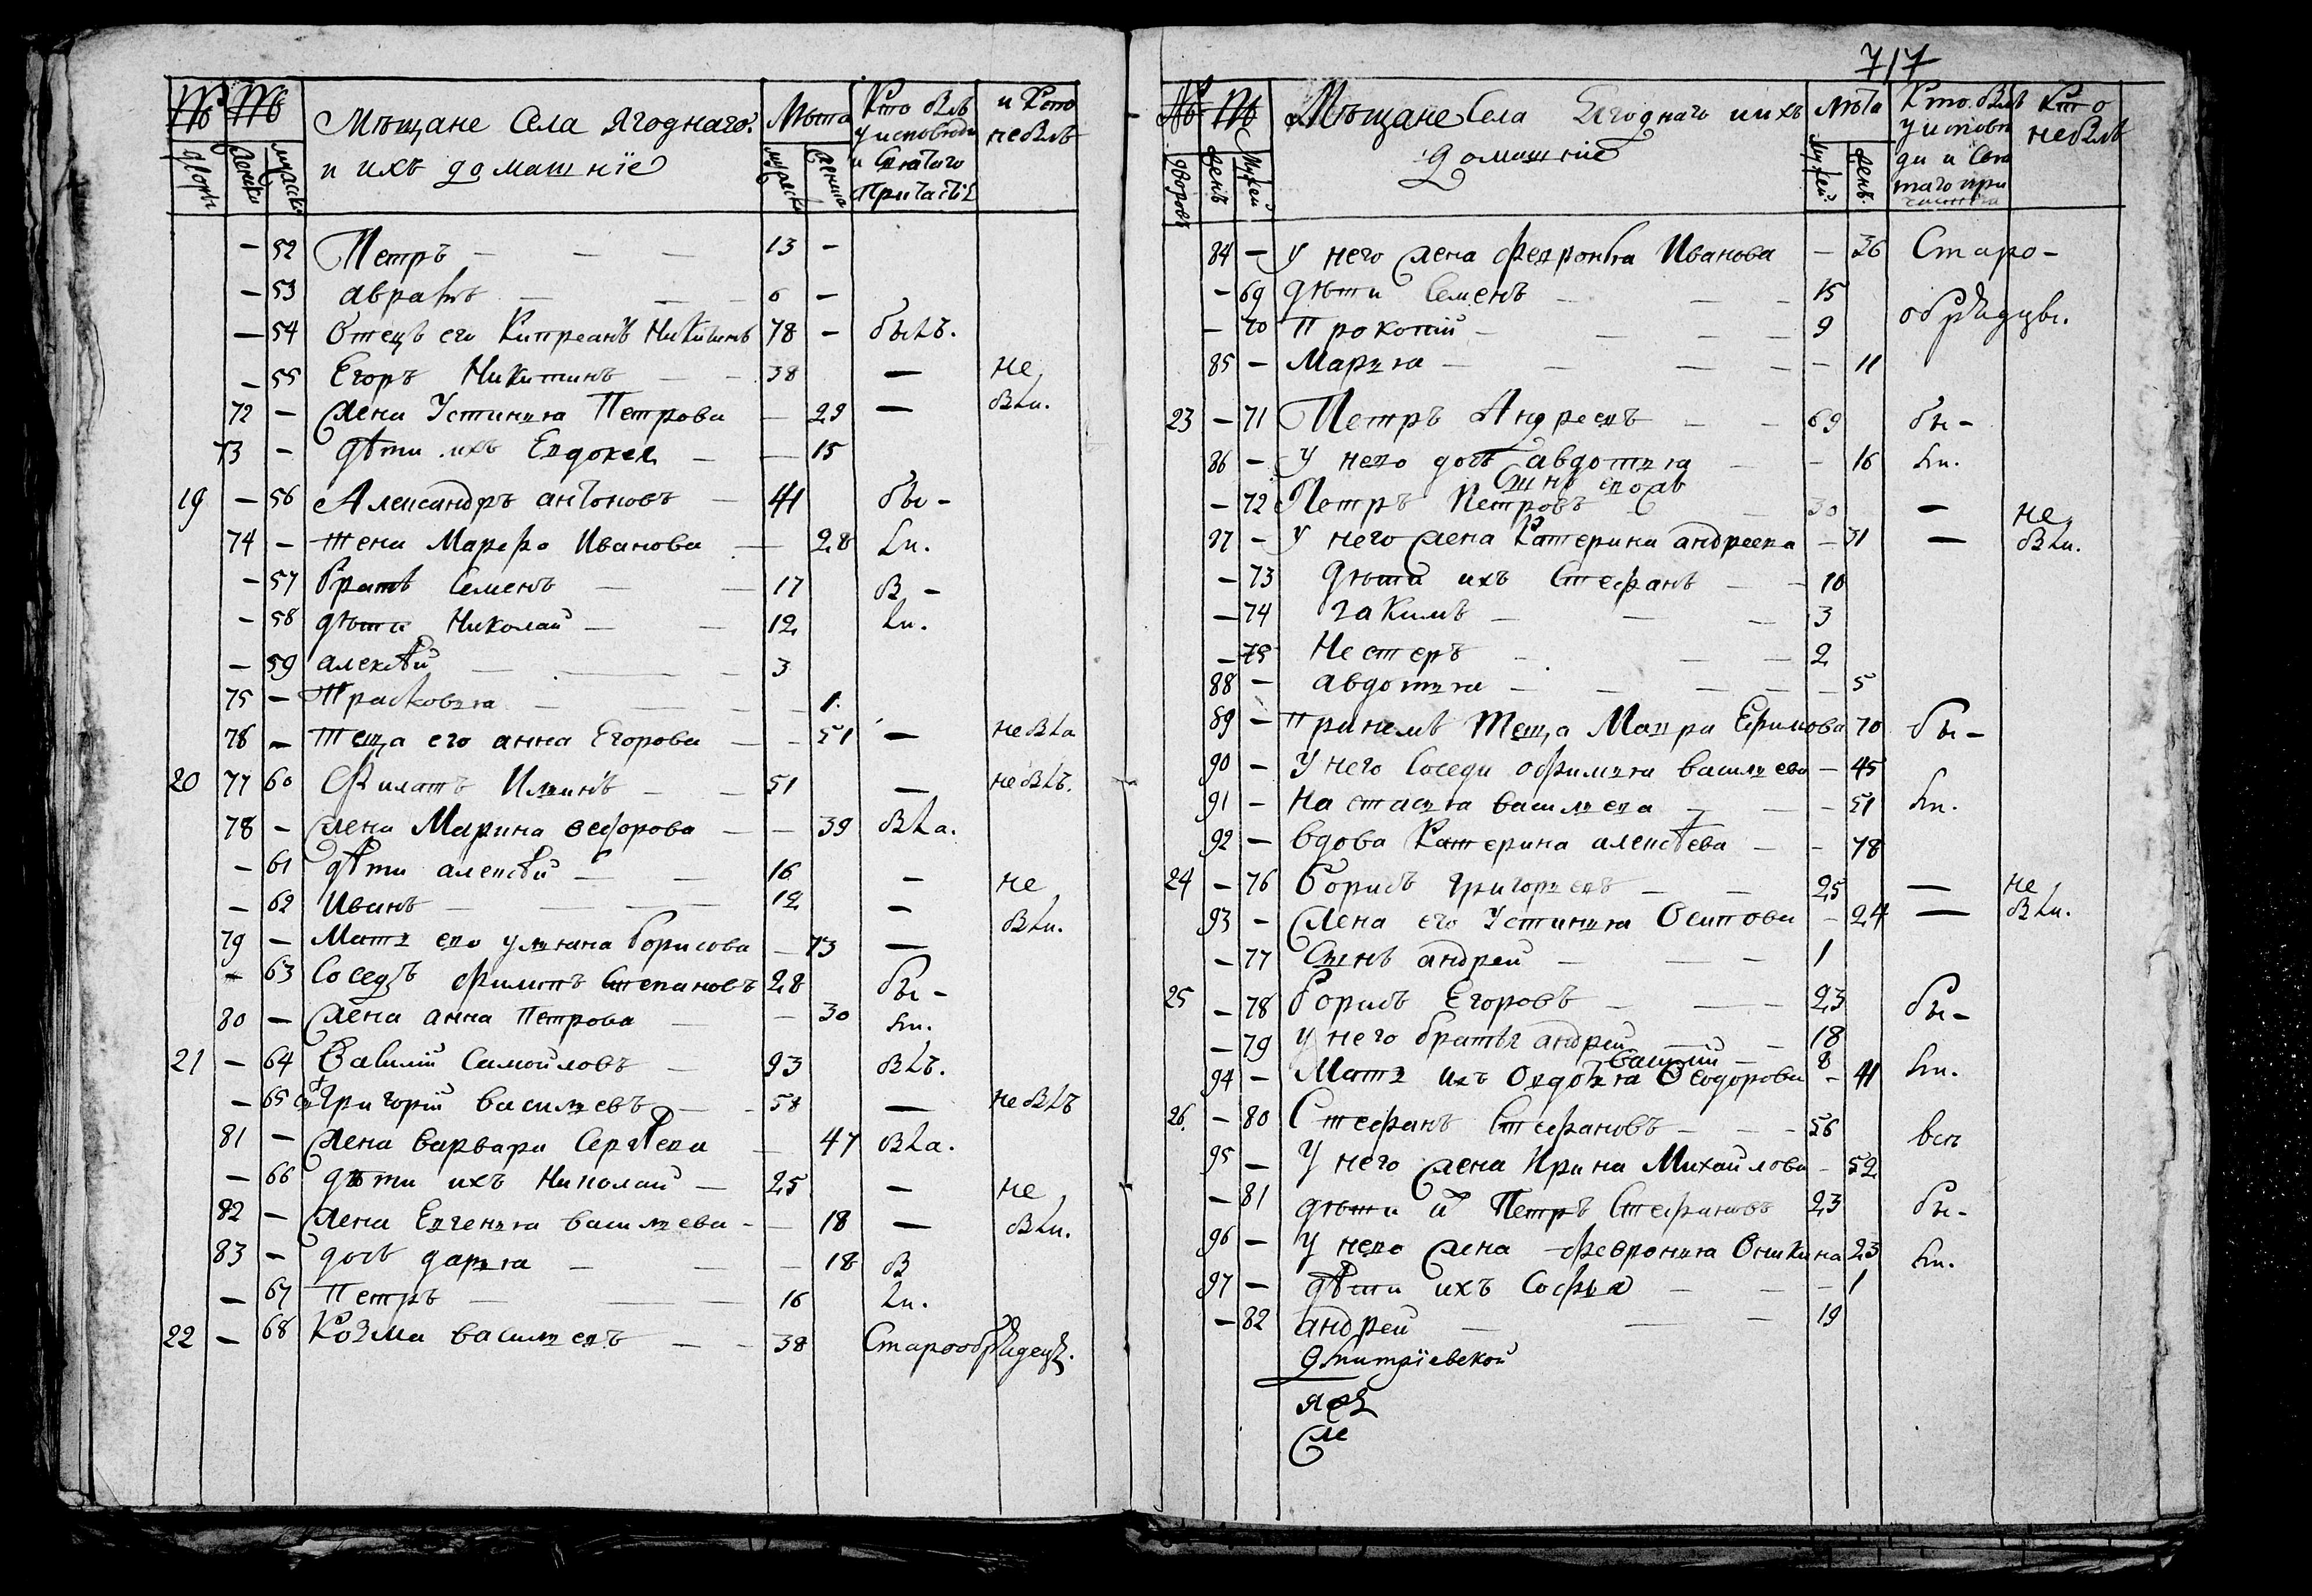 № № Мѣщане Села Ягоднаго Лѣта Кто былъ и Кто
и ихъ домашнїе у исповѣди небылъ
и Святаго
Причастїѧ
дворы женска мужска мужска женска
— 52 Петръ — — — 13 —
— 53 аврамъ — — — 6 —
— 54 Отецъ его Кипреанъ Никитинъ 78 — былъ.
— 55 Егоръ Никитинъ — — 38 — не
72 — жена Устинья Петрова — 29 — были.
73 — дѣти ихъ Евдокея — — 15
19 — 56 Александръ антоновъ — 41 бы-
74 — жена Марфа Иванова — 28 ли.
— 57 братъ Семенъ — — 17 б-
— 58 дѣти Николай — — 12 ли.
— 59 алексѣй — — — 3
75 — Прасковья — — — 1.
76 — теща его анна Егорова — — 51 — небыла
20 77 60 Филатъ Ильинъ — — 51 — небылъ.
78 — жена Марина Ѳедорова — — 39 была.
— 61 дѣти алексѣй — — 16 — не
— 62 Иванъ — — — 12 — были.
79 — Мать ево ульяна борисова — 73 —
— 63 Соседъ Филипъ Степановъ 28 бы-
80 — жена анна Петрова — — 30 ли.
21 — 64 Василій Самойловъ — 93 былъ.
— 65 Григорій васильевъ — — 58 — небылъ
81 — жена варвара Сергѣева — 47 была.
— 66 дѣти ихъ Николай — 25 — не
82 — жена Евгенья васильева — — 18 — были.
83 — дочь дарья — — — 18 б
— 67 Петръ — — — 16 ли.
22 — 68 Козма васильевъ — — 38 Старообрядецъ.
717
№ № Мѣщане Села Ягоднаго и ихъ Лѣта Кто былъ Кто
домашніе у исповѣ небылъ
ди и Свя
таго при
дворовъ женъ мужей мужей женъ
84 — у него жена Февронья Иванова — 36 Старо-
— 69 дѣти Семенъ — — — 15 обрядцы.
— 70 Прокопій — — — — 9
85 — Марья — — — — — 11
23 — 71 Петръ Андреевъ — — 69 бы-
86 — у нево дочь авдотья — — 16 ли.
Сынъ ево
— 72 Петръ Петровъ — 30 — не
87 — у него жена Катерина андреева — 31 — были.
— 73 дѣти ихъ Стефанъ — — 10
— 74 Иакимъ — — — 3
— 75 Нестеръ — — — 2
88 — авдотья — — — — — 5
89 — Принемъ теща Мавра Ефимова 70 бы-
90 — у него Соседи офимья васильева — 45
91 — Настасья васильева — — — 51 ли.
92 — вдова Катерина алексѣева — — 78
24 — 76 Борисъ григорьевъ — — 25 — не
93 — жена его Устинья Осипова — 24 — были.
— 77 Сынъ андрей — — — 1
25 — 78 борисъ Егоровъ — — — 23 бы-
— 79 у него братья андрей — — 18
василий — 8
94 — Мать ихъ Овдотья Ѳеодорова — 41 ли.
26. — 80 Стефанъ Стефановъ — — — 56 всѣ
95 — у него жена Ирина Михайлова — 52
— 81 дѣти Петръ Стефановъ 23 бы-
96 — у нево жена февронья Оникина 23 ли.
97 — дѣти ихъ Софья — — — 1
— 82 андрей — — — 19
Дмитріевской